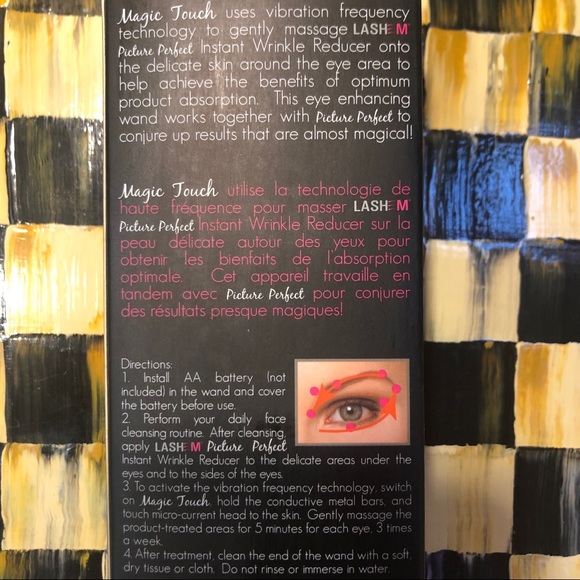 Magic Touch uses vibration frequency
technology to gently massage LASH M
Picture Perfect Instant Wrinkle Reducer onto
the delicate skin around the eye area to
help achieve the benefits of optimum
product absorption. This eye enhancing
wand works together with Picture Perfect to
conjure up results that are almost magical!
Magic Touch utilise la technologie de
haute fréquence pour masser LASH M
Picture Perfect Instant Wrinkle Reducer sur la
peau délicate autour des yeux pour
obtenir les bienfaits de l'absorption
optimale. Cet appareil travaille en
tandem avec Picture Perfect pour conjurer
des résultats presque magiques!
Directions:
1. Install AA battery (not
included) in the wand and cover
the battery before use.
2. Perform your daily face
cleansing routine. After cleansing,
apply LASH M Picture Perfect
Instant Wrinkle Reducer to the delicate areas under the
eyes and to the sides of the eyes.
3. To activate the vibration frequency technology, switch
on Magic Touch, hold the conductive metal bars, and
touch micro-current head to the skin. Gently massage the
product-treated areas for 5 minutes for each eye, 3 times
a week.
4. After treatment, clean the end of the wand with a soft,
dry tissue or cloth. Do not rinse or immerse in water.